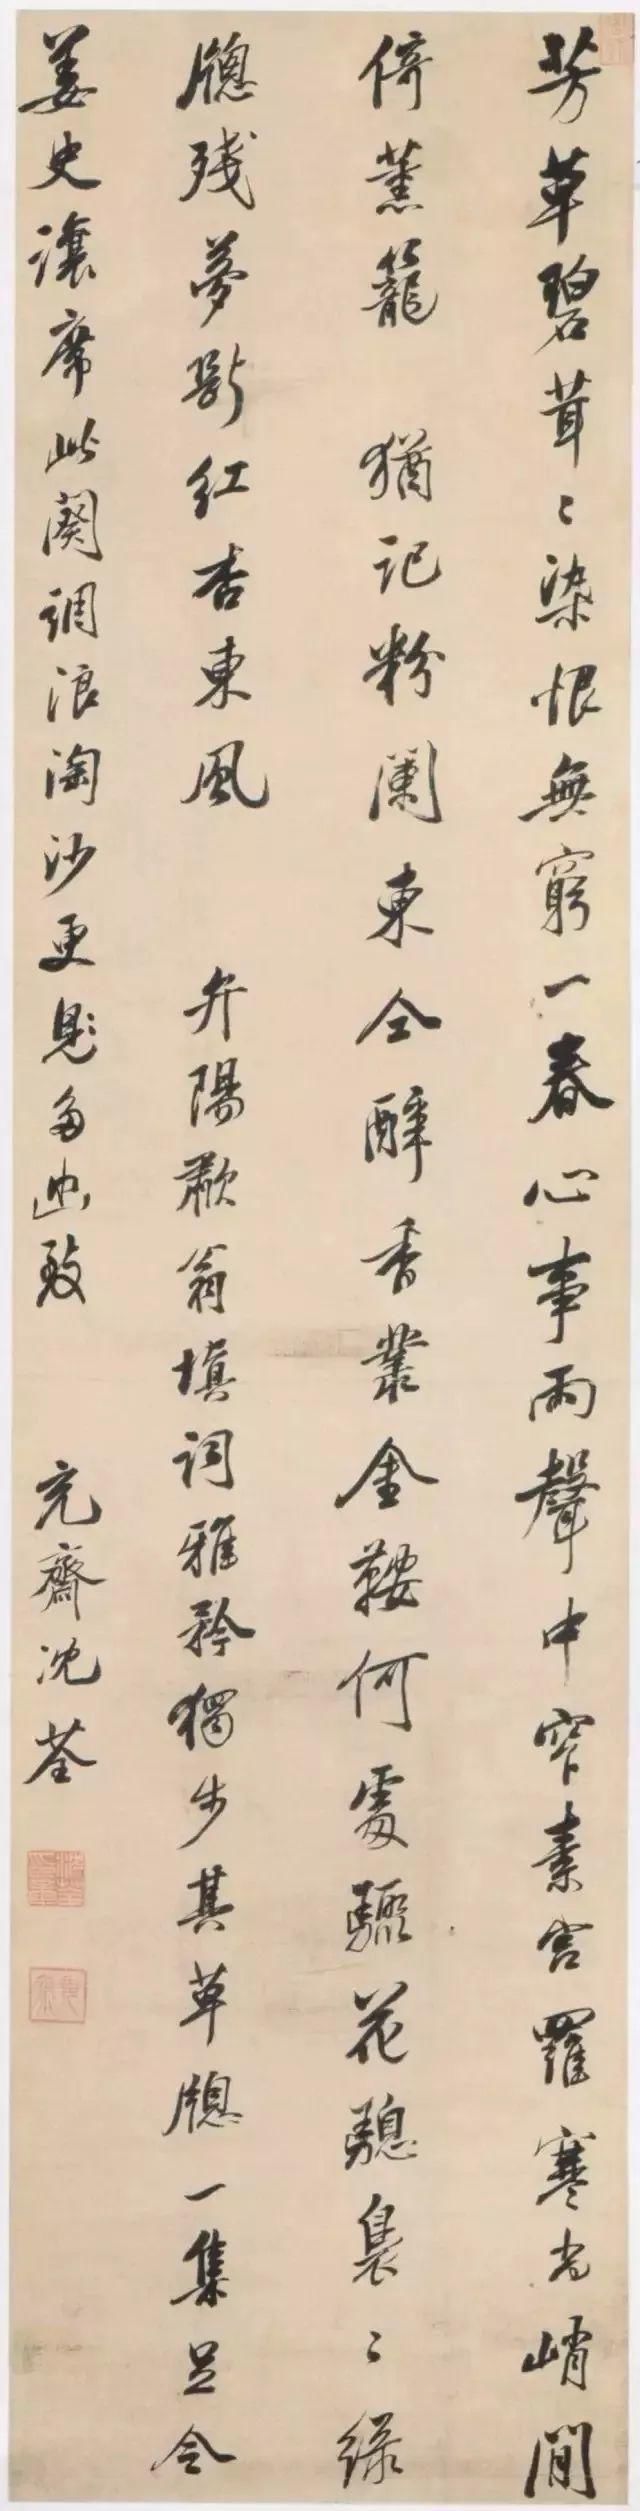 芳草碧茸〻染恨無窮一春心事雨聲中窄素宮羅寒尚峭閒
倚薰籠 猶記粉闌東仝醉香叢金鞍何處驟花驄裊〻綠
牕残夢斷紅杏東風 弁陽歗翁填詞雅矜獨步其草牕一集足令
姜史讓席此闋調浪淘沙更多幽致 充齋沈荃